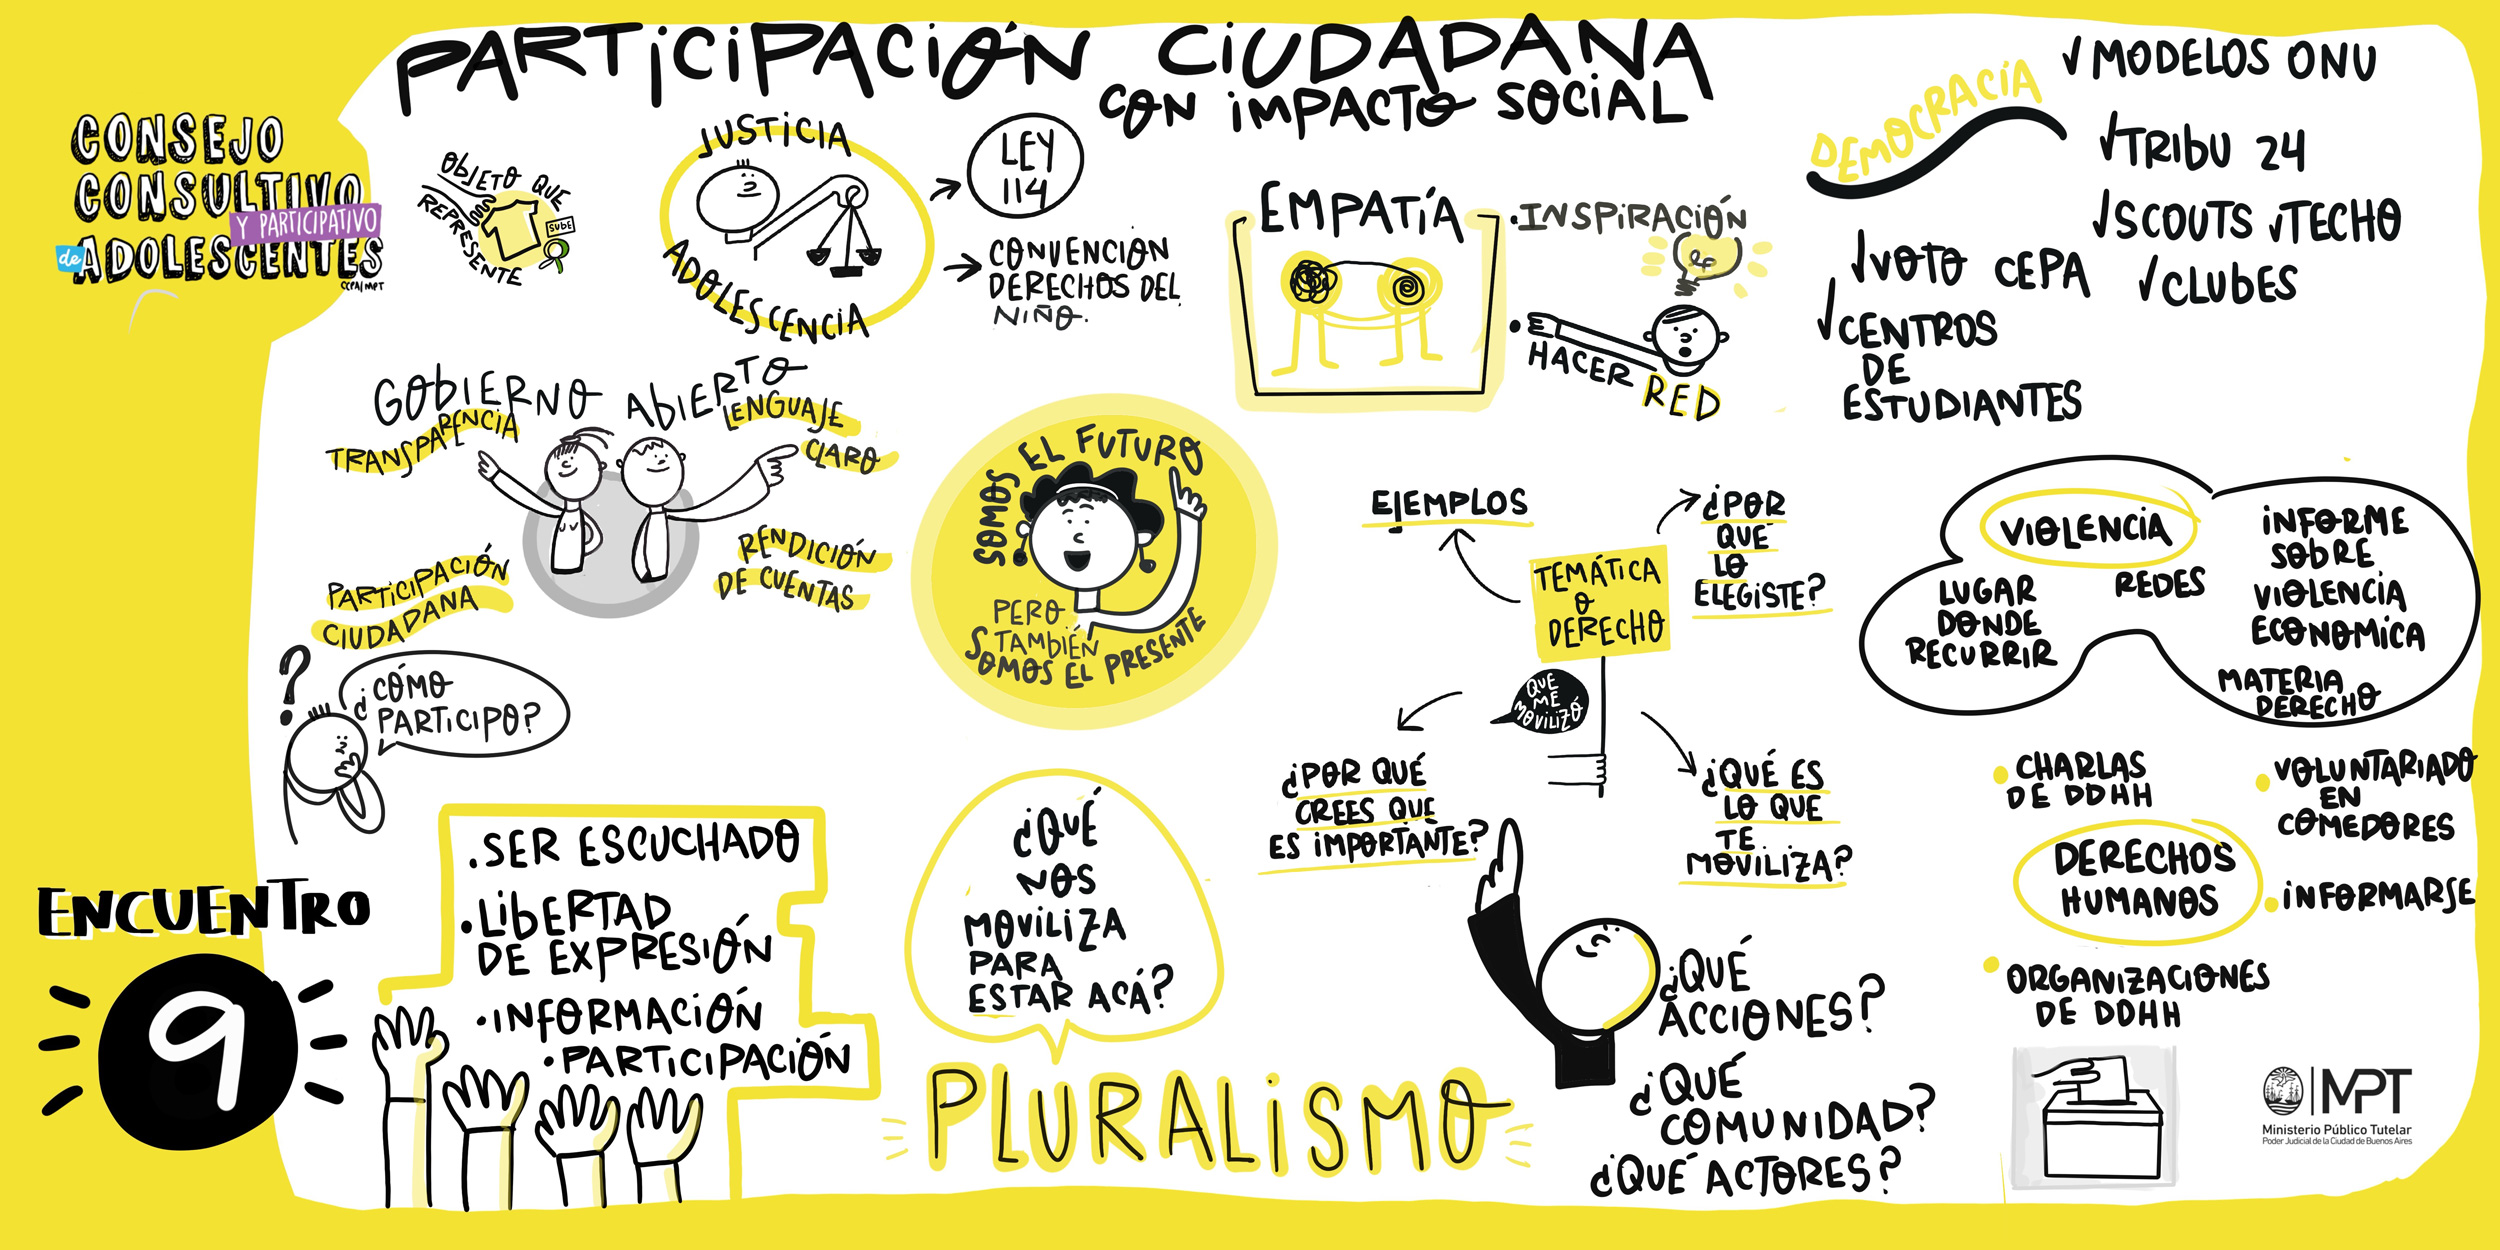 PARTICIPACIÓN CIUDADANA
CON IMPACTO SOCIAL
CONSEJO
CONSULTIVO
Y PARTICIPATIVO
de ADOLESCENTES
CCPA/MPT
OBJETO QUE
REPRESENTE
SUBE
JUSTICIA
ADOLESCENCIA
LEY
114
CONVENCION
DERECHOS DEL
NIÑO.
EMPATÍA
• INSPIRACIÓN
• HACER
RED
DEMOCRACIA
✓MODELOS ONU
✓TRIBU 24
✓SCOUTS ✓TECHO
✓VOTO CEPA
✓CLUBES
✓CENTROS
DE
ESTUDIANTES
GOBIERNO ABIERTO
TRANSPARENCIA
LENGUAJE
CLARO
PARTICIPACIÓN
CIUDADANA
RENDICIÓN
DE CUENTAS
¿CÓMO
PARTICIPO?
?
SOMOS EL FUTURO
PERO
TAMBIÉN
SOMOS EL PRESENTE
EJEMPLOS
¿POR
QUÉ
LO
ELEGISTE?
TEMÁTICA
O
DERECHO
QUE
ME
MOVILIZÓ
¿POR QUÉ
CREES QUE
ES IMPORTANTE?
¿QUÉ ES
LO QUE
TE
MOVILIZA?
VIOLENCIA
REDES
LUGAR
DONDE
RECURRIR
INFORME
SOBRE
VIOLENCIA
ECONOMICA
MATERIA
DERECHO
• CHARLAS
DE DDHH
• VOLUNTARIADO
EN
COMEDORES
DERECHOS
HUMANOS
• INFORMARSE
• ORGANIZACIONES
DE DDHH
ENCUENTRO
9
• SER ESCUCHADO
• LIBERTAD
DE EXPRESIÓN
• INFORMACIÓN
• PARTICIPACIÓN
¿QUÉ
NOS
MOVILIZA
PARA
ESTAR ACÁ?
PLURALISMO
¿QUÉ
ACCIONES?
¿QUÉ
COMUNIDAD?
¿QUÉ ACTORES?
MPT
Ministerio Público Tutelar
Poder Judicial de la Ciudad de Buenos Aires